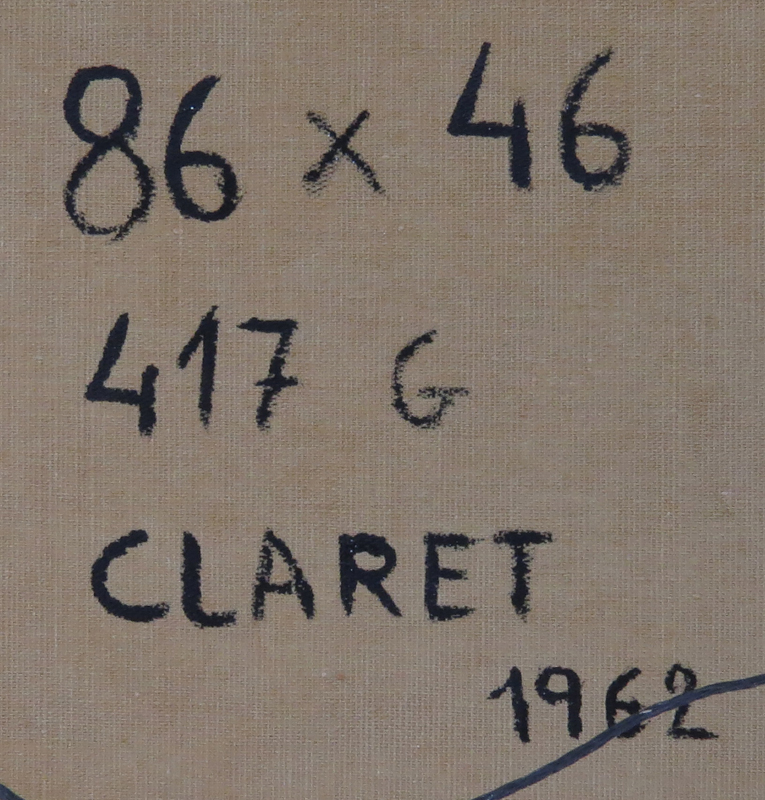 86 x 46
417 G
CLARET
1962